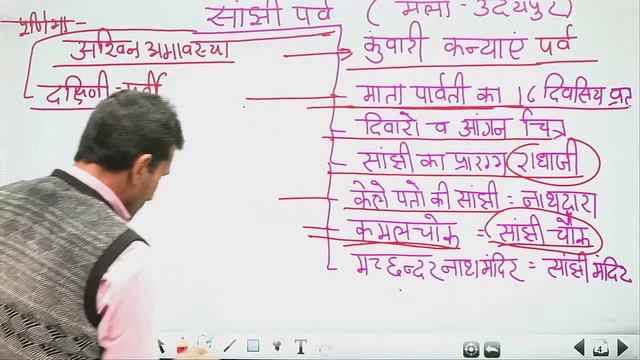 पूर्णिमा
सांझी पर्व ( मेला - उदयपुर)
अश्विन अमावस्या
कुंवारी कन्याएं पर्व
दक्षिणी
माता पार्वती का 16 दिवसिय व्रत
दिवारो व आंगन चित्र
सांझी का प्रारम्भ राधाजी
केले पतो की सांझी = नाथद्वारा
कमल चोक = सांझी चौक
मछन्दर नाथ मंदिर = सांझी मंदिर
T
4